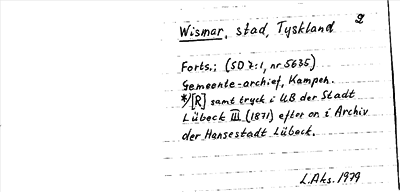 2
Wismar, stad, Tyskland
Forts.; (SD 7:1, nr 5635)
Gemeente-archief, Kampen.
*/[R] samt tryck i UB der Stadt
Lübeck III (1871) efter or. i Archiv
der Hansestadt Lübeck.
L.Aks. 1979